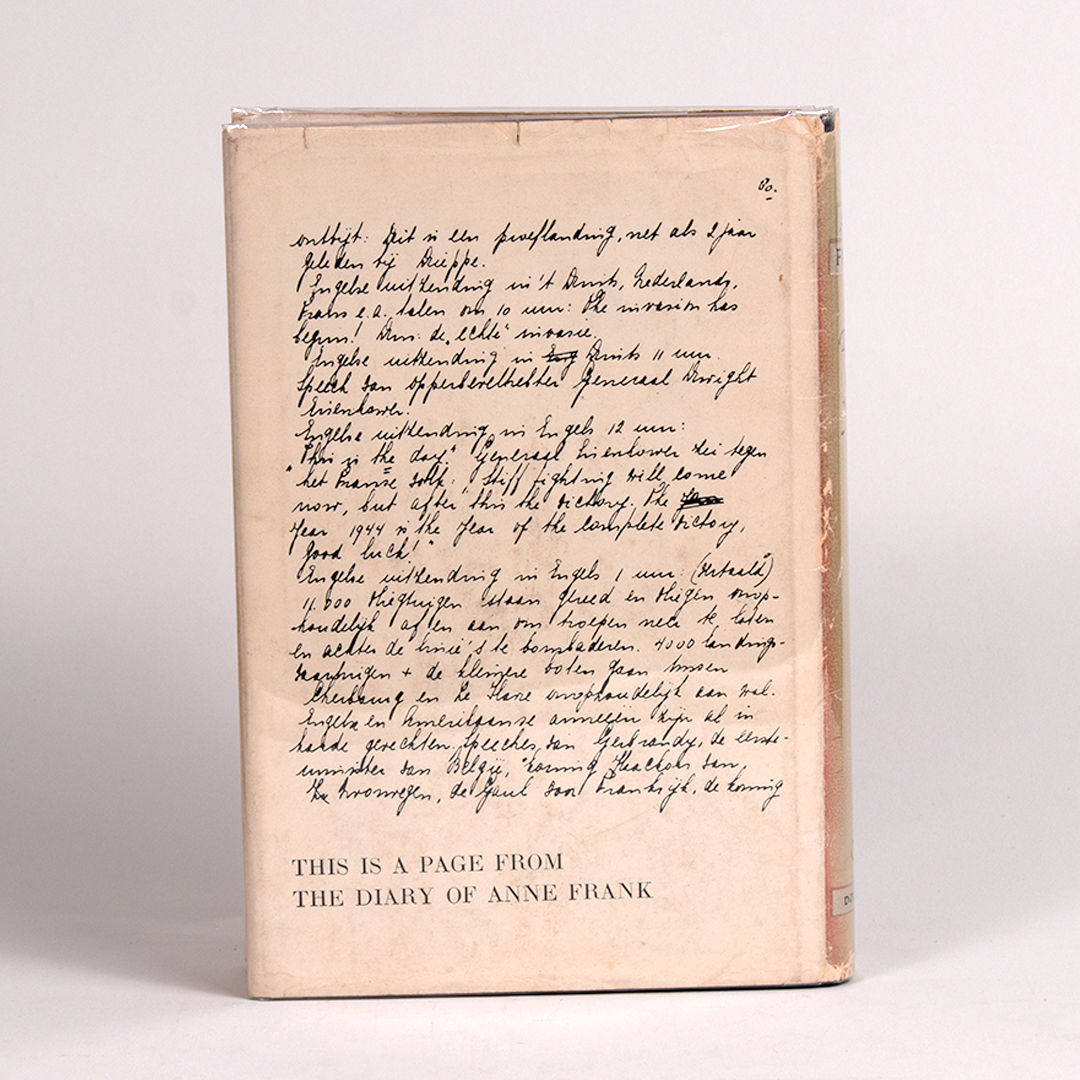 80.
ontbijt: Dit is een proeflanding, net als 2 jaar
geleden bij Dieppe.
Engelse uitzending in 't Duits, Nederlands,
Frans e.a. talen om 10 uur: The invasion has
begun! Dus: de „echte" invasie.
Engelse uitzending in Eng Duits 11 uur.
Speech van opperbevelhebber Generaal Dwight
Eisenhower.
Engelse uitzending in Engels 12 uur:
„This is the day." Generaal Eisenhower zei tegen
het Franse volk: „Stiff fighting will come
now, but after this the victory. The
Year 1944 is the Year of the complete victory,
good luck!"
Engelse uitzending in Engels 1 uur: (vertaald)
11.000 vliegtuigen staan gereed en vliegen onop-
houdelijk af en aan om troepen neer te laten
en achter de linie's te bombarderen. 4000 landings-
vaartuigen + de kleinere boten gaan tussen
Cherbourg en Le Havre onophoudelijk aan wal.
Engelse en Amerikaanse armeeën zijn al in
harde gevechten. Speeches van Gerbrandy, de eerste-
minister van België, koning Haakon van
Noorwegen, de Gaul voor Frankrijk, de koning
THIS IS A PAGE FROM
THE DIARY OF ANNE FRANK
F
DO